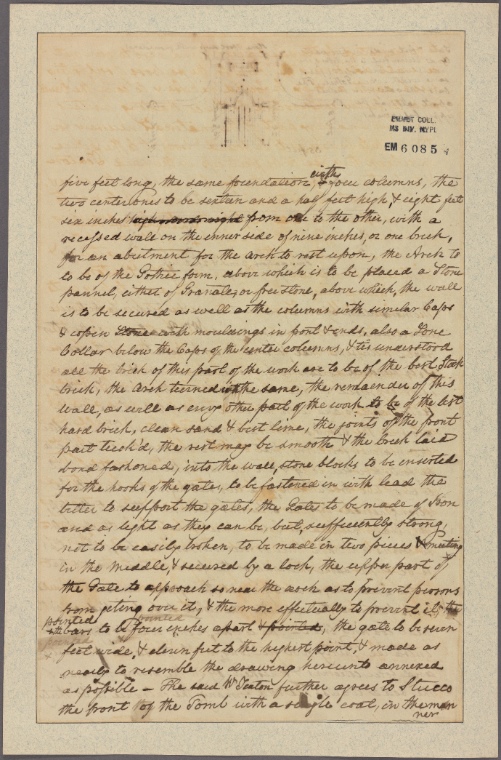 EMMET COLL.
MS DIV. NYPL
EM 6085
five feet long, the same foundation, with four columns, the
two center ones to be sixteen and a half feet high & eight feet
six inches from one to the other, with a
recessed wall on the inner side of nine inches, or one brick,
for an abutment for the Arch to rest upon, the Arch to
to be of the Gothic form, above which is to be placed a Stone
pannel, either of Granate, or free stone, above which, the wall
is to be secured as well as the columns with similar Caps
& copen Stone with mouldings in front & ends, also a Stone
Collar below the Caps of the center columns, & tis understood
all the brick of this part of the work are to be of the best Stock
brick, the Arch turned with the same, the remainder of this
wall, as well as evry other part of the work to be of the best
hard brick, clean sand & best lime, the joints of the front
part tuck'd, the rest may be smooth & the brick laid
bond fashoned, into the wall, stone blocks to be inserted
for the hooks of the gate, to be fastened in with lead the
better to support the gates, the Gate to be made of Iron
and as light as they can be, but, sufficiently strong
not to be easily broken, to be made in two pieces & meeting
in the middle, & secured by a lock, the upper part of
the Gate to approach so near the arch as to prevent persons
from geting over it, & the more effectually to prevent it, the
pointed
bars to be four inches apart & pointed, the gate to be seven
feet wide, & eleven feet to the highest point, & made as
nearly to resemble the drawing hereunto annexed
as possible – The said Wm Seaton further agrees to Stucco
the front of the Tomb with a single coat, in the man
ner